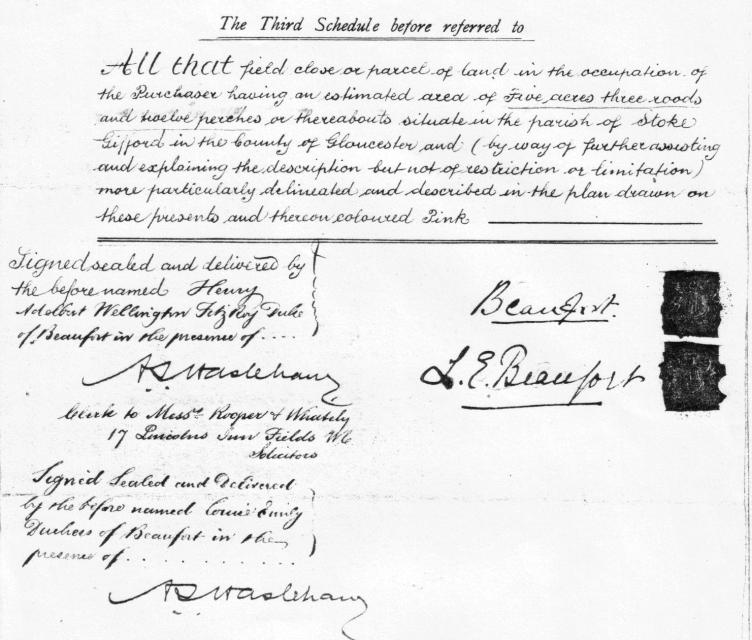 The Third Schedule before referred to
All that field close or parcel of land in the occupation of
the Purchaser having an estimated area of Five acres three roods
and twelve perches or thereabouts situate in the parish of Stoke
Gifford in the County of Gloucester and (by way of further assisting
and explaining the description but not of restriction or limitation)
more particularly delineated and described in the plan drawn on
these presents and thereon coloured Pink
Signed sealed and delivered by
the before named Henry
Adelbert Wellington FitzRoy Duke
of Beaufort in the presence of ....
Beaufort.
L. E. Beaufort
Clerk to Messrs. Rooper & Whately
17 Lincolns Inn Fields WC
Solicitors
Signed Sealed and Delivered
by the before named Louise Emily
Duchess of Beaufort in the
presence of . . . . . . . . . .